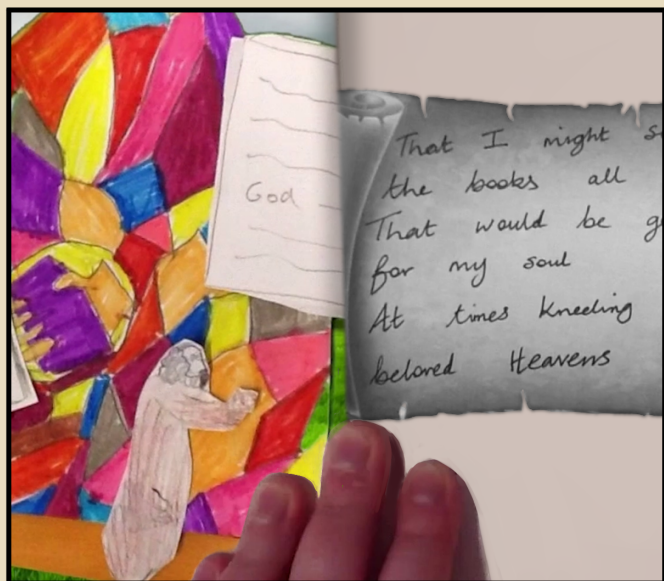 God
That I might
the books all
That would be
for my soul
At times kneeling
beloved Heavens